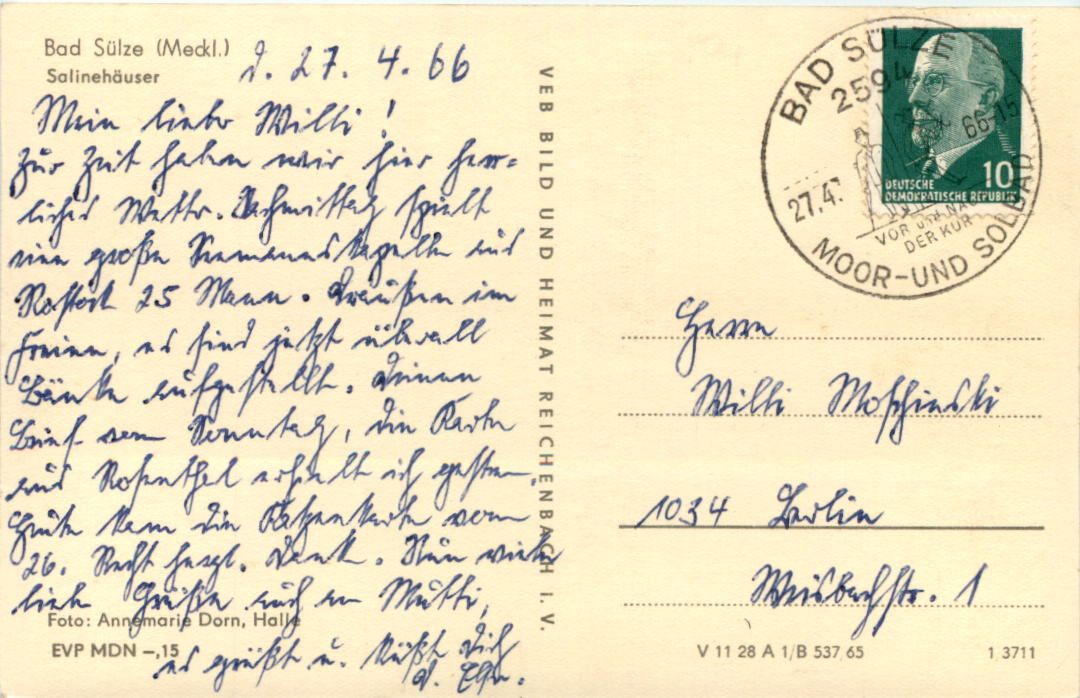 Bad Sülze (Meckl.)
Salinehäuser
d. 27. 4. 66
Mein lieber Willi!
Zur Zeit haben wir hier herr=
liches Wetter. Nachmittag spielt
eine große Seemannskapelle aus
Rostock 25 Mann. Draußen im
Freien, es sind jetzt überall
Bänke aufgestellt. Deinen
Brief vom Sonntag, die Karte
aus Rosenthal erhielt ich gestern.
Heute kam die Katzenkarte vom
26. Recht herzl. Dank. Nun viele
liebe Grüße auch an Mutti,
es grüßt u. küßt Dich
Foto: Annemarie Dorn, Halle
EVP MDN –,15
VEB BILD UND HEIMAT REICHENBACH I. V.
BAD SÜLZE
2594
27.4. 66-15
VOR und NACH
DER KUR
MOOR-UND SOLBAD
10
DEUTSCHE
DEMOKRATISCHE REPUBLIK
Herrn
Willi Moschinski
1034 Berlin
Weisbachstr. 1
V 11 28 A 1/B 537/65
1 3711